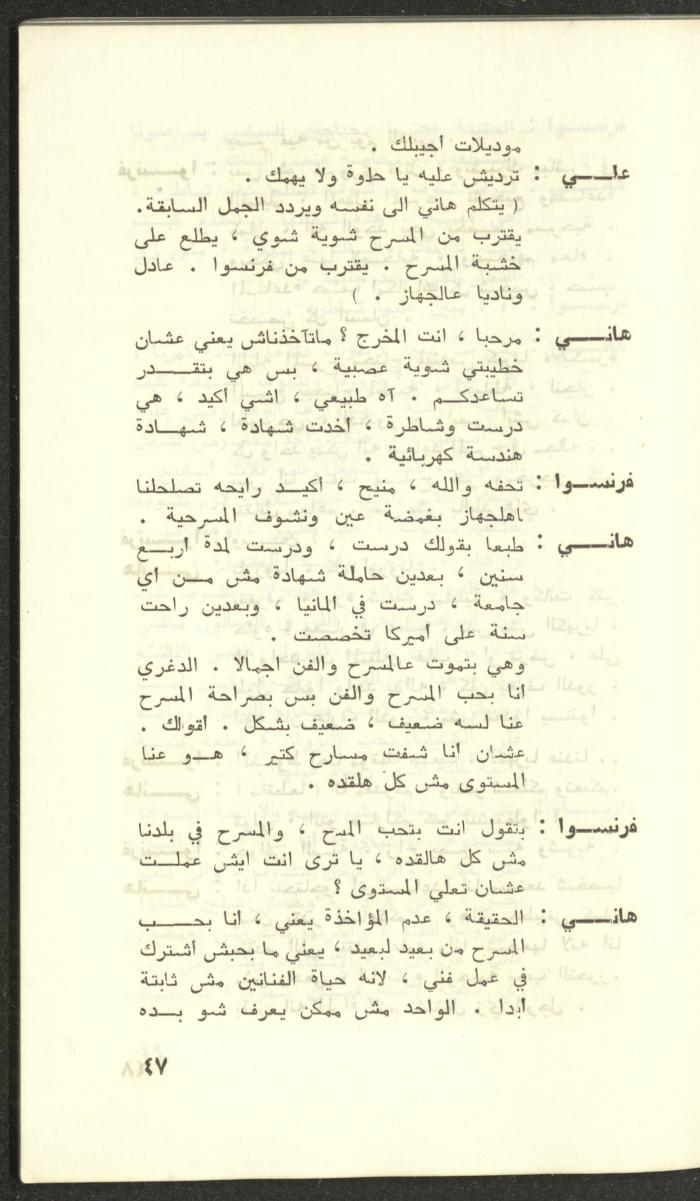 موديلات أجيبلك .
علـــي : ترديش عليه يا حلوة ولا يهمك .
( يتكلم هاني الى نفسه ويردد الجمل السابقة.
يقترب من المسرح شوية شوي ، يطلع على
خشبة المسرح . يقترب من فرنسوا . عادل
وناديا عالجهاز . )
هانـــي : مرحبا ، انت المخرج ؟ ماتآخذناش يعني عشان
خطيبتي شوية عصبية ، بس هي بتقــدر
تساعدكــم . آه طبيعي ، اشي أكيد ، هي
درست وشاطرة ، أخدت شهادة ، شهـادة
هندسة كهربائية .
فرنســوا : تحفه والله ، منيح ، أكيـد رايحه تصلحلنا
اهلجهاز بغمضة عين ونشوف المسرحية .
هانـــي : طبعا بقولك درست ، ودرست لمدة أربــع
سنين ، بعدين حاملة شهادة مش مــن أي
جامعة ، درست في المانيا ، وبعدين راحت
سنة على أميركا تخصصت .
وهي بتموت عالمسرح والفن اجمالا . الدغري
أنا بحب المسرح والفن بس بصراحة المسرح
عنا لسه ضعيف ، ضعيف بشكل . أقولك .
عشان أنا شفت مسارح كتير ، هــو عنا
المستوى مش كل هلقده .
فرنســوا : بتقول انت بتحب المسرح ، والمسرح في بلدنا
مش كل هالقده ، يا ترى انت ايش عملــت
عشان تعلي المستوى ؟
هانـــي : الحقيقة ، عدم المؤاخذة يعني ، أنا بحــب
المسرح من بعيد لبعيد ، يعني ما بحبش أشترك
في عمل فني ، لانه حياة الفنانين مش ثابتة
أبدا . الواحد مش ممكن يعرف شو بــده
٤٧